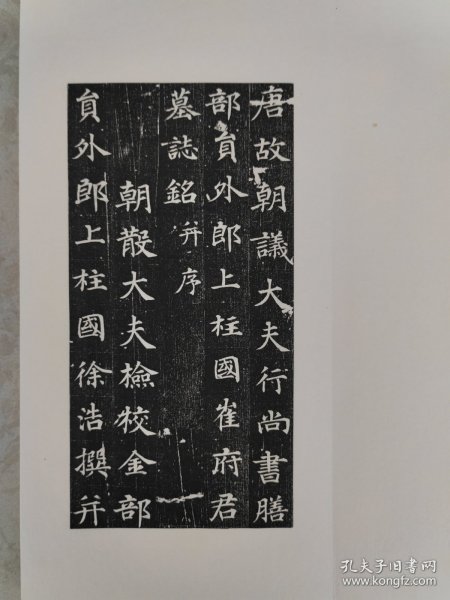 唐故朝議大夫行尚書膳
部員外郎上柱國崔府君
墓誌銘并序
朝散大夫檢校金部
員外郎上柱國徐浩撰并
孔夫子旧书网
www.kongfz.com